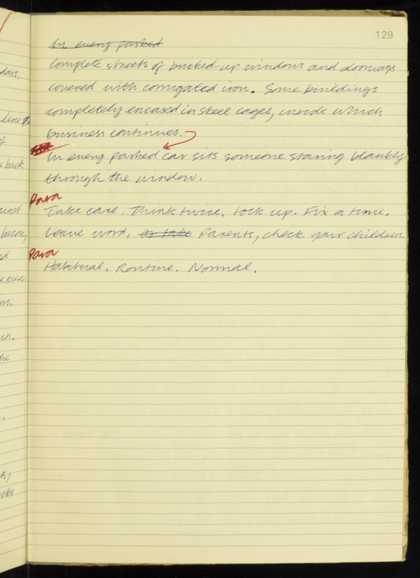 129
In every parked
Complete streets of bricked up windows and doorways
covered with corrugated iron. Some buildings
completely encased in steel cages, inside which
business continues.
In every parked car sits someone staring blankly
through the window.
Para
Take care. Think twice. Lock up. Fix a time.
Leave word. Parents, check your children
Para
Habitual. Routine. Normal.